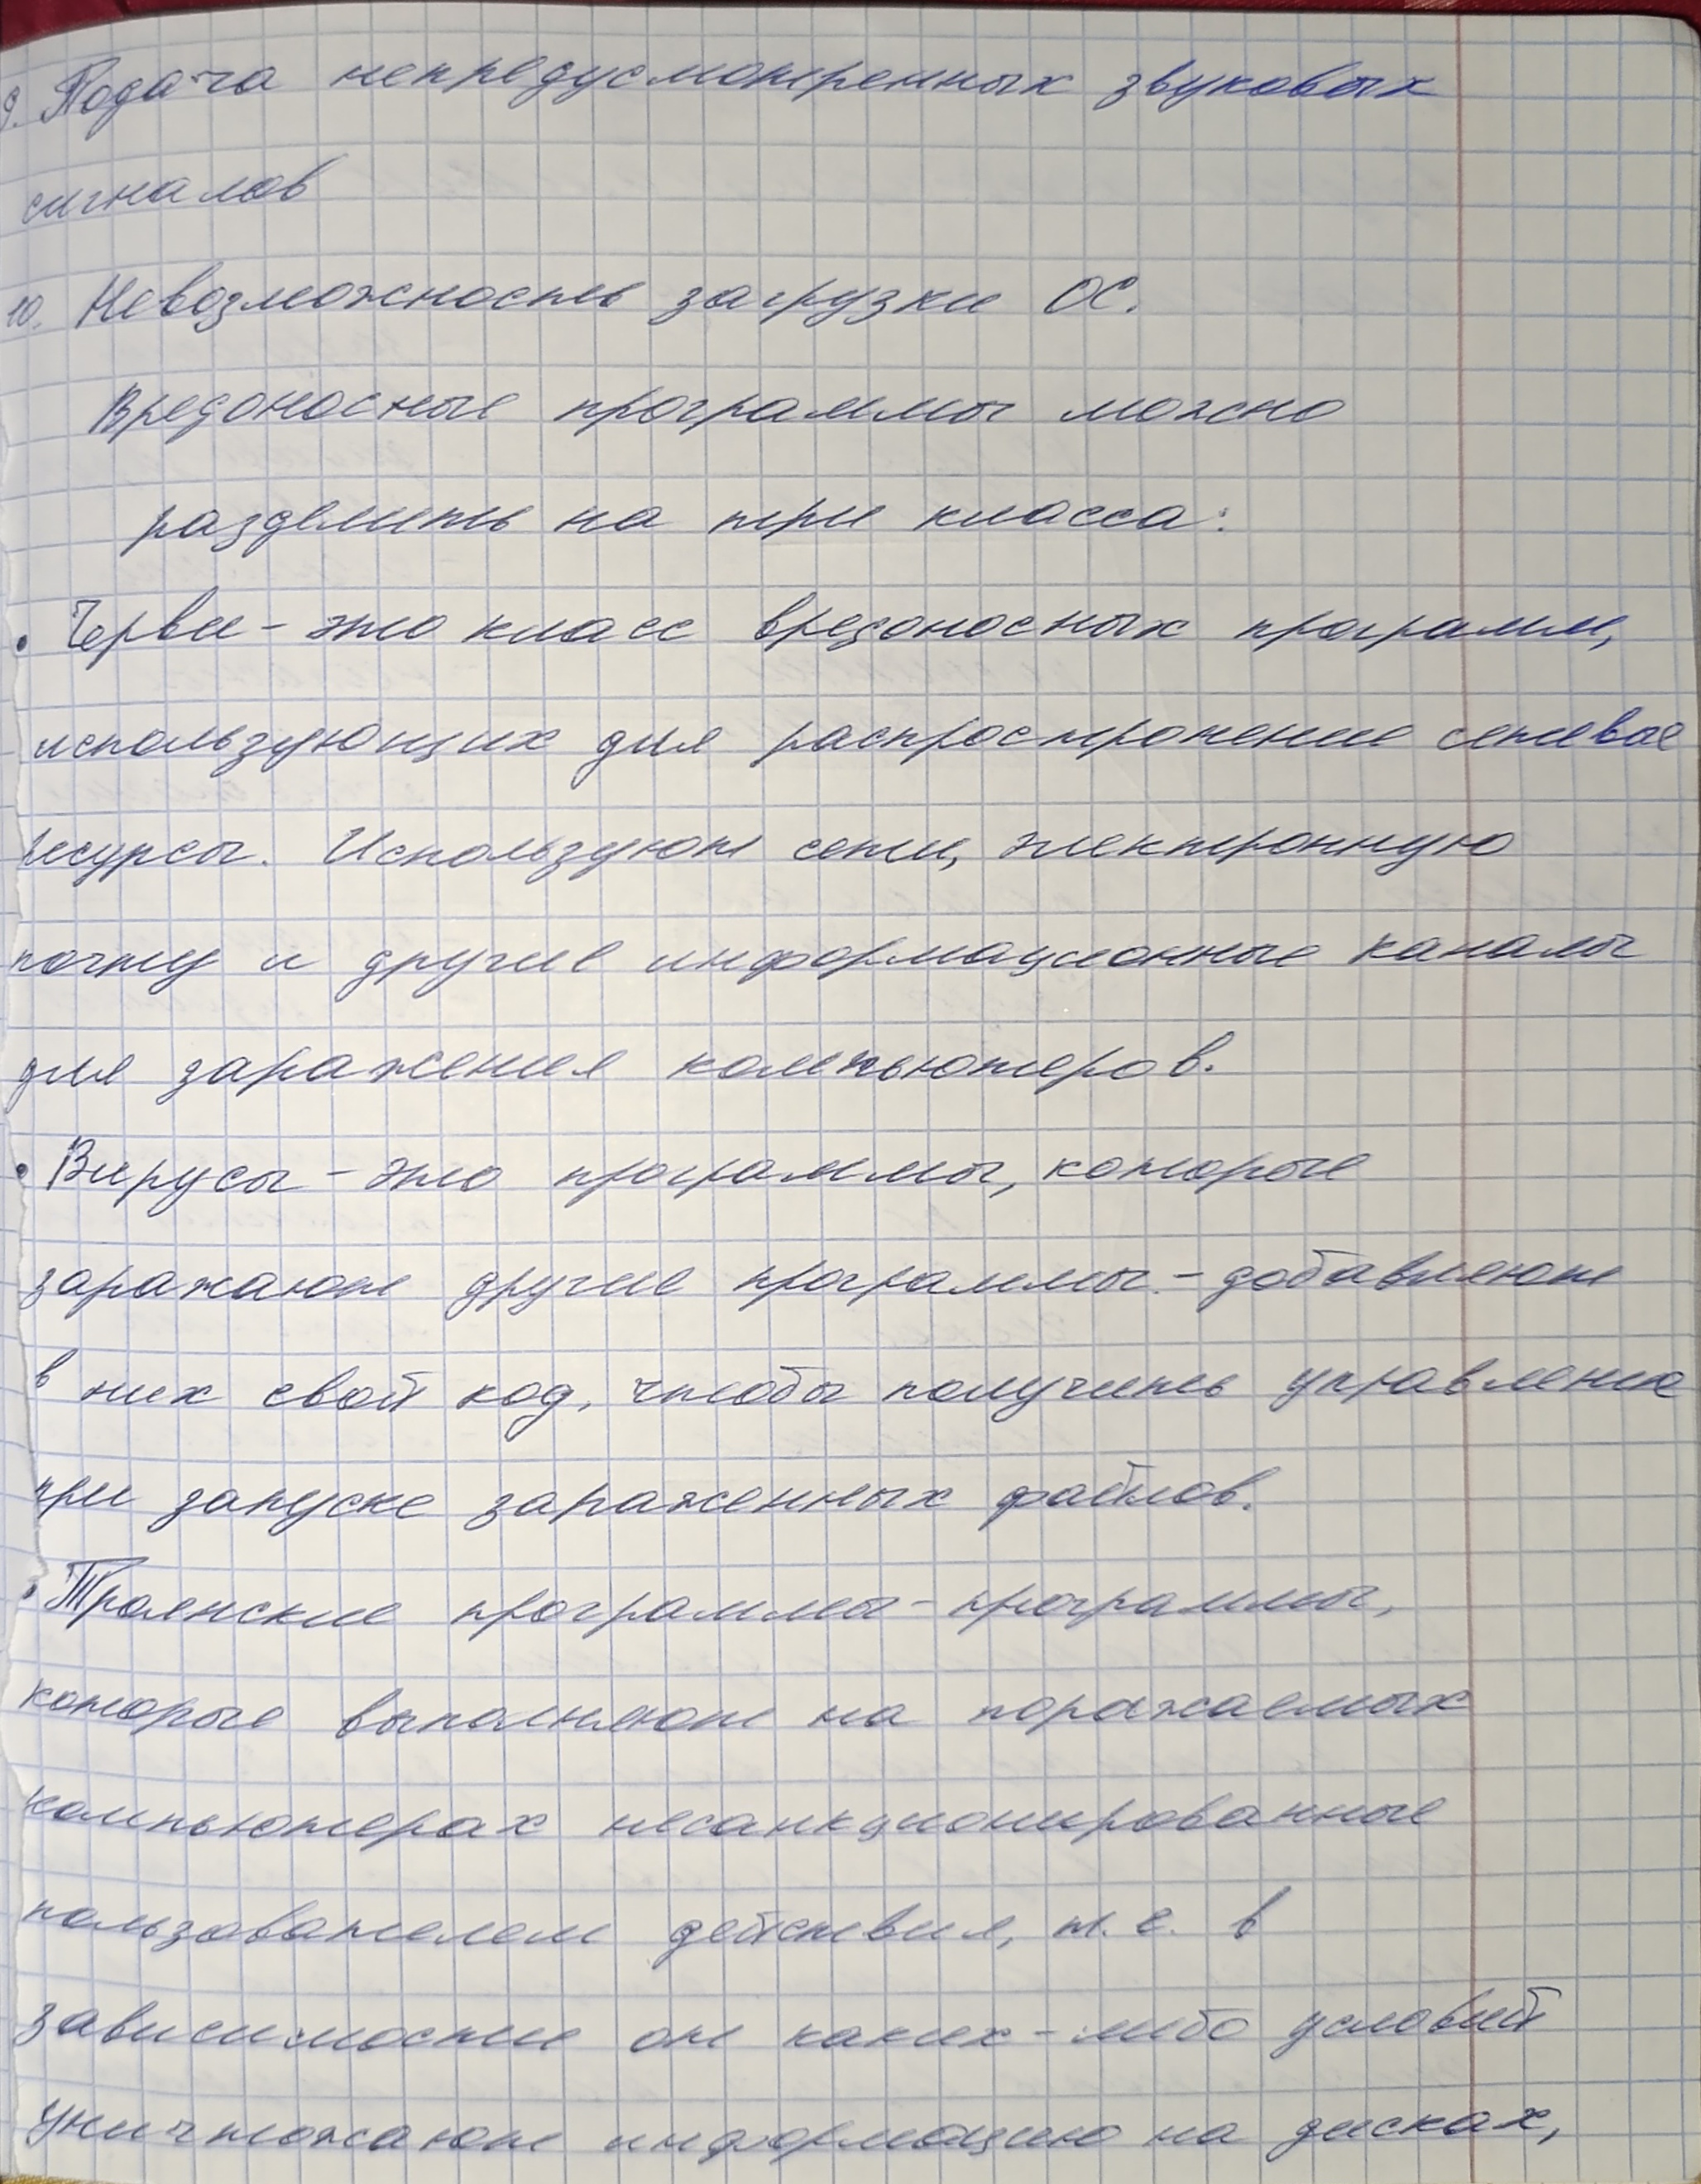 9. Подача непредусмотренных звуковых
сигналов
10. Невозможность загрузки ОС.
Вредоносные программы можно
разделить на три класса:
• Черви - это класс вредоносных программ,
использующих для распространение сетевые
ресурсы. Используют сети, электронную
почту и другие информационные каналы
для заражения компьютеров.
• Вирусы - это программы, которые
заражают другие программы - добавляют
в них свой код, чтобы получить управление
при запуске зараженных файлов.
• Троянские программы - программы,
которые выполняют на поражаемых
компьютерах несанкционированные
пользователем действия, т. е. в
зависимости от каких-либо условий
уничтожают информацию на дисках,